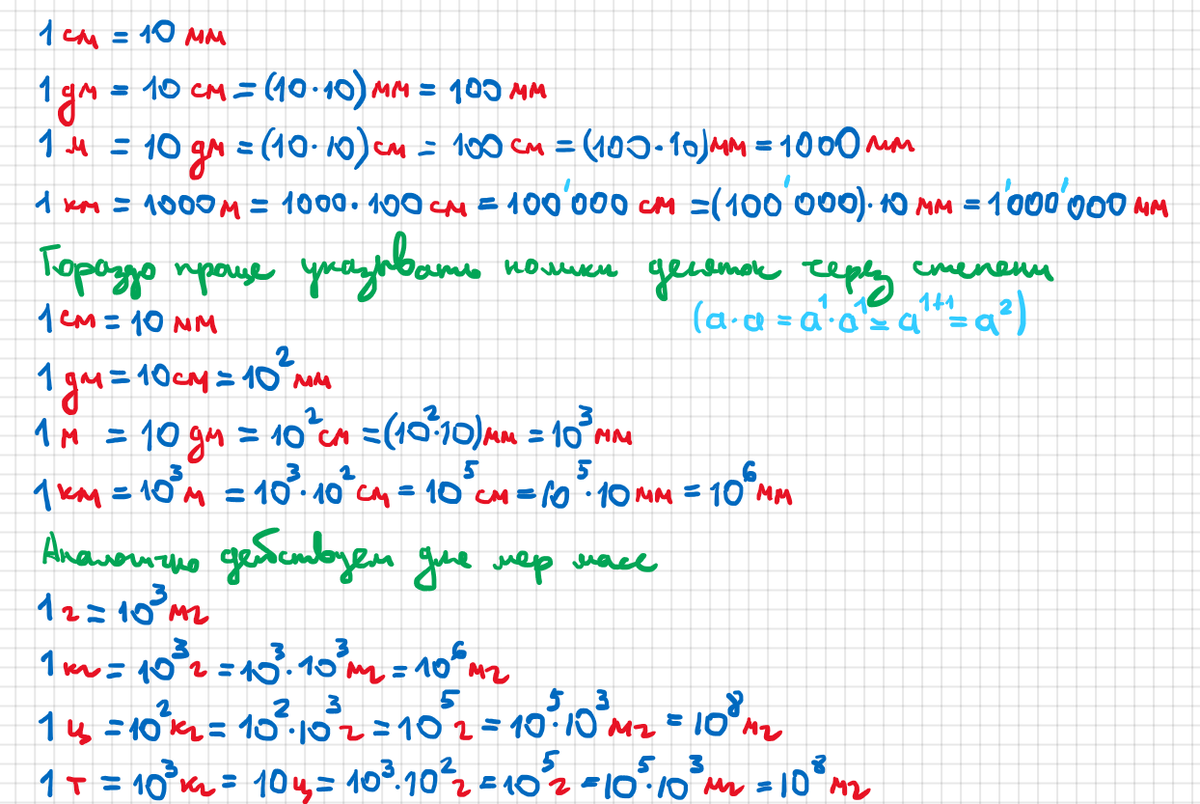 1 см = 10 мм
1 дм = 10 см = (10·10) мм = 100 мм
1 м = 10 дм = (10·10) см = 100 см = (100·10) мм = 1000 мм
1 км = 1000 м = 1000·100 см = 100'000 см = (100'000)·10 мм = 1'000'000 мм
Гораздо проще указывать полики десяток через степени
1 см = 10 мм (a·a = a¹·a¹ = a¹⁺¹ = a²)
1 дм = 10 см = 10² мм
1 м = 10 дм = 10² см = (10²·10) мм = 10³ мм
1 км = 10³ м = 10³·10² см = 10⁵ см = 10⁵·10 мм = 10⁶ мм
Аналогично действуем для мер масс
1 г = 10³ мг
1 кг = 10³ г = 10³·10³ мг = 10⁶ мг
1 ц = 10² кг = 10²·10³ г = 10⁵ г = 10⁵·10³ мг = 10⁸ мг
1 т = 10³ кг = 10 ц = 10³·10² г = 10⁵ г = 10⁵·10³ мг = 10⁸ мг